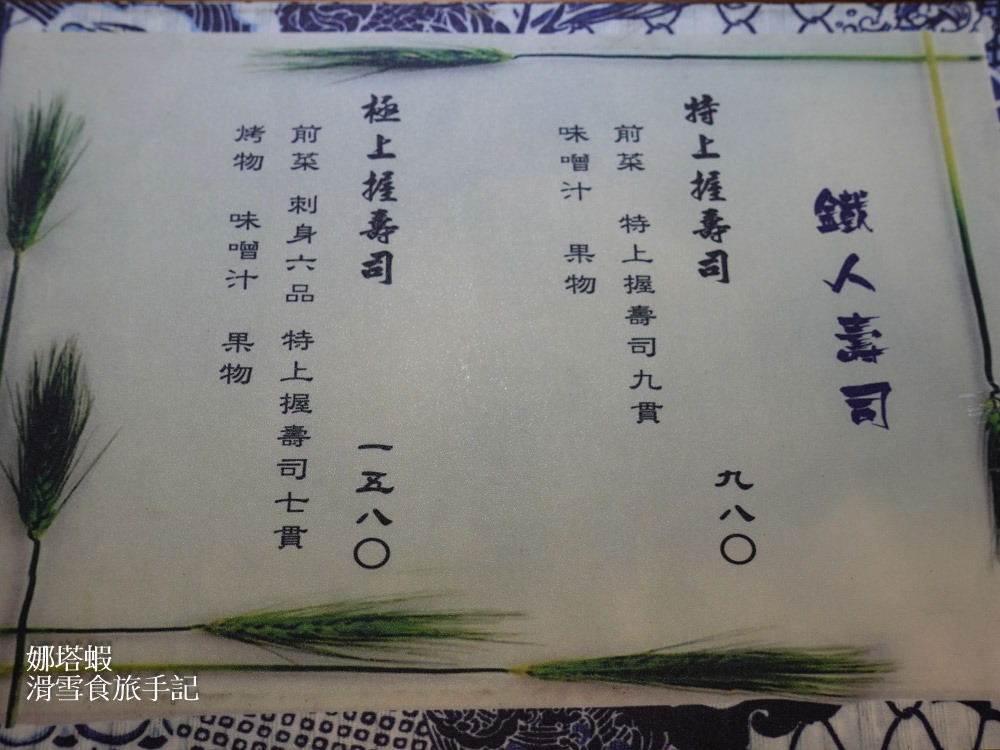 鐵人壽司
特上握壽司 九八〇
前菜 特上握壽司九貫
味噌汁 果物
極上握壽司 一五八〇
前菜 刺身六品 特上握壽司七貫
烤物 味噌汁 果物
娜塔蝦
滑雪食旅手記